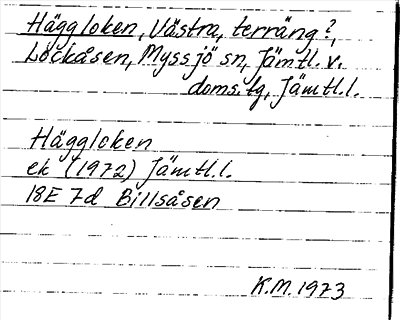 Häggloken, Västra, terräng?,
Lockåsen, Myssjö sn, Jämtl. v.
doms.tg, Jämtl.l.
Häggloken
ek (1972) Jämtl.l.
18E 7d Billsåsen
K.M. 1973